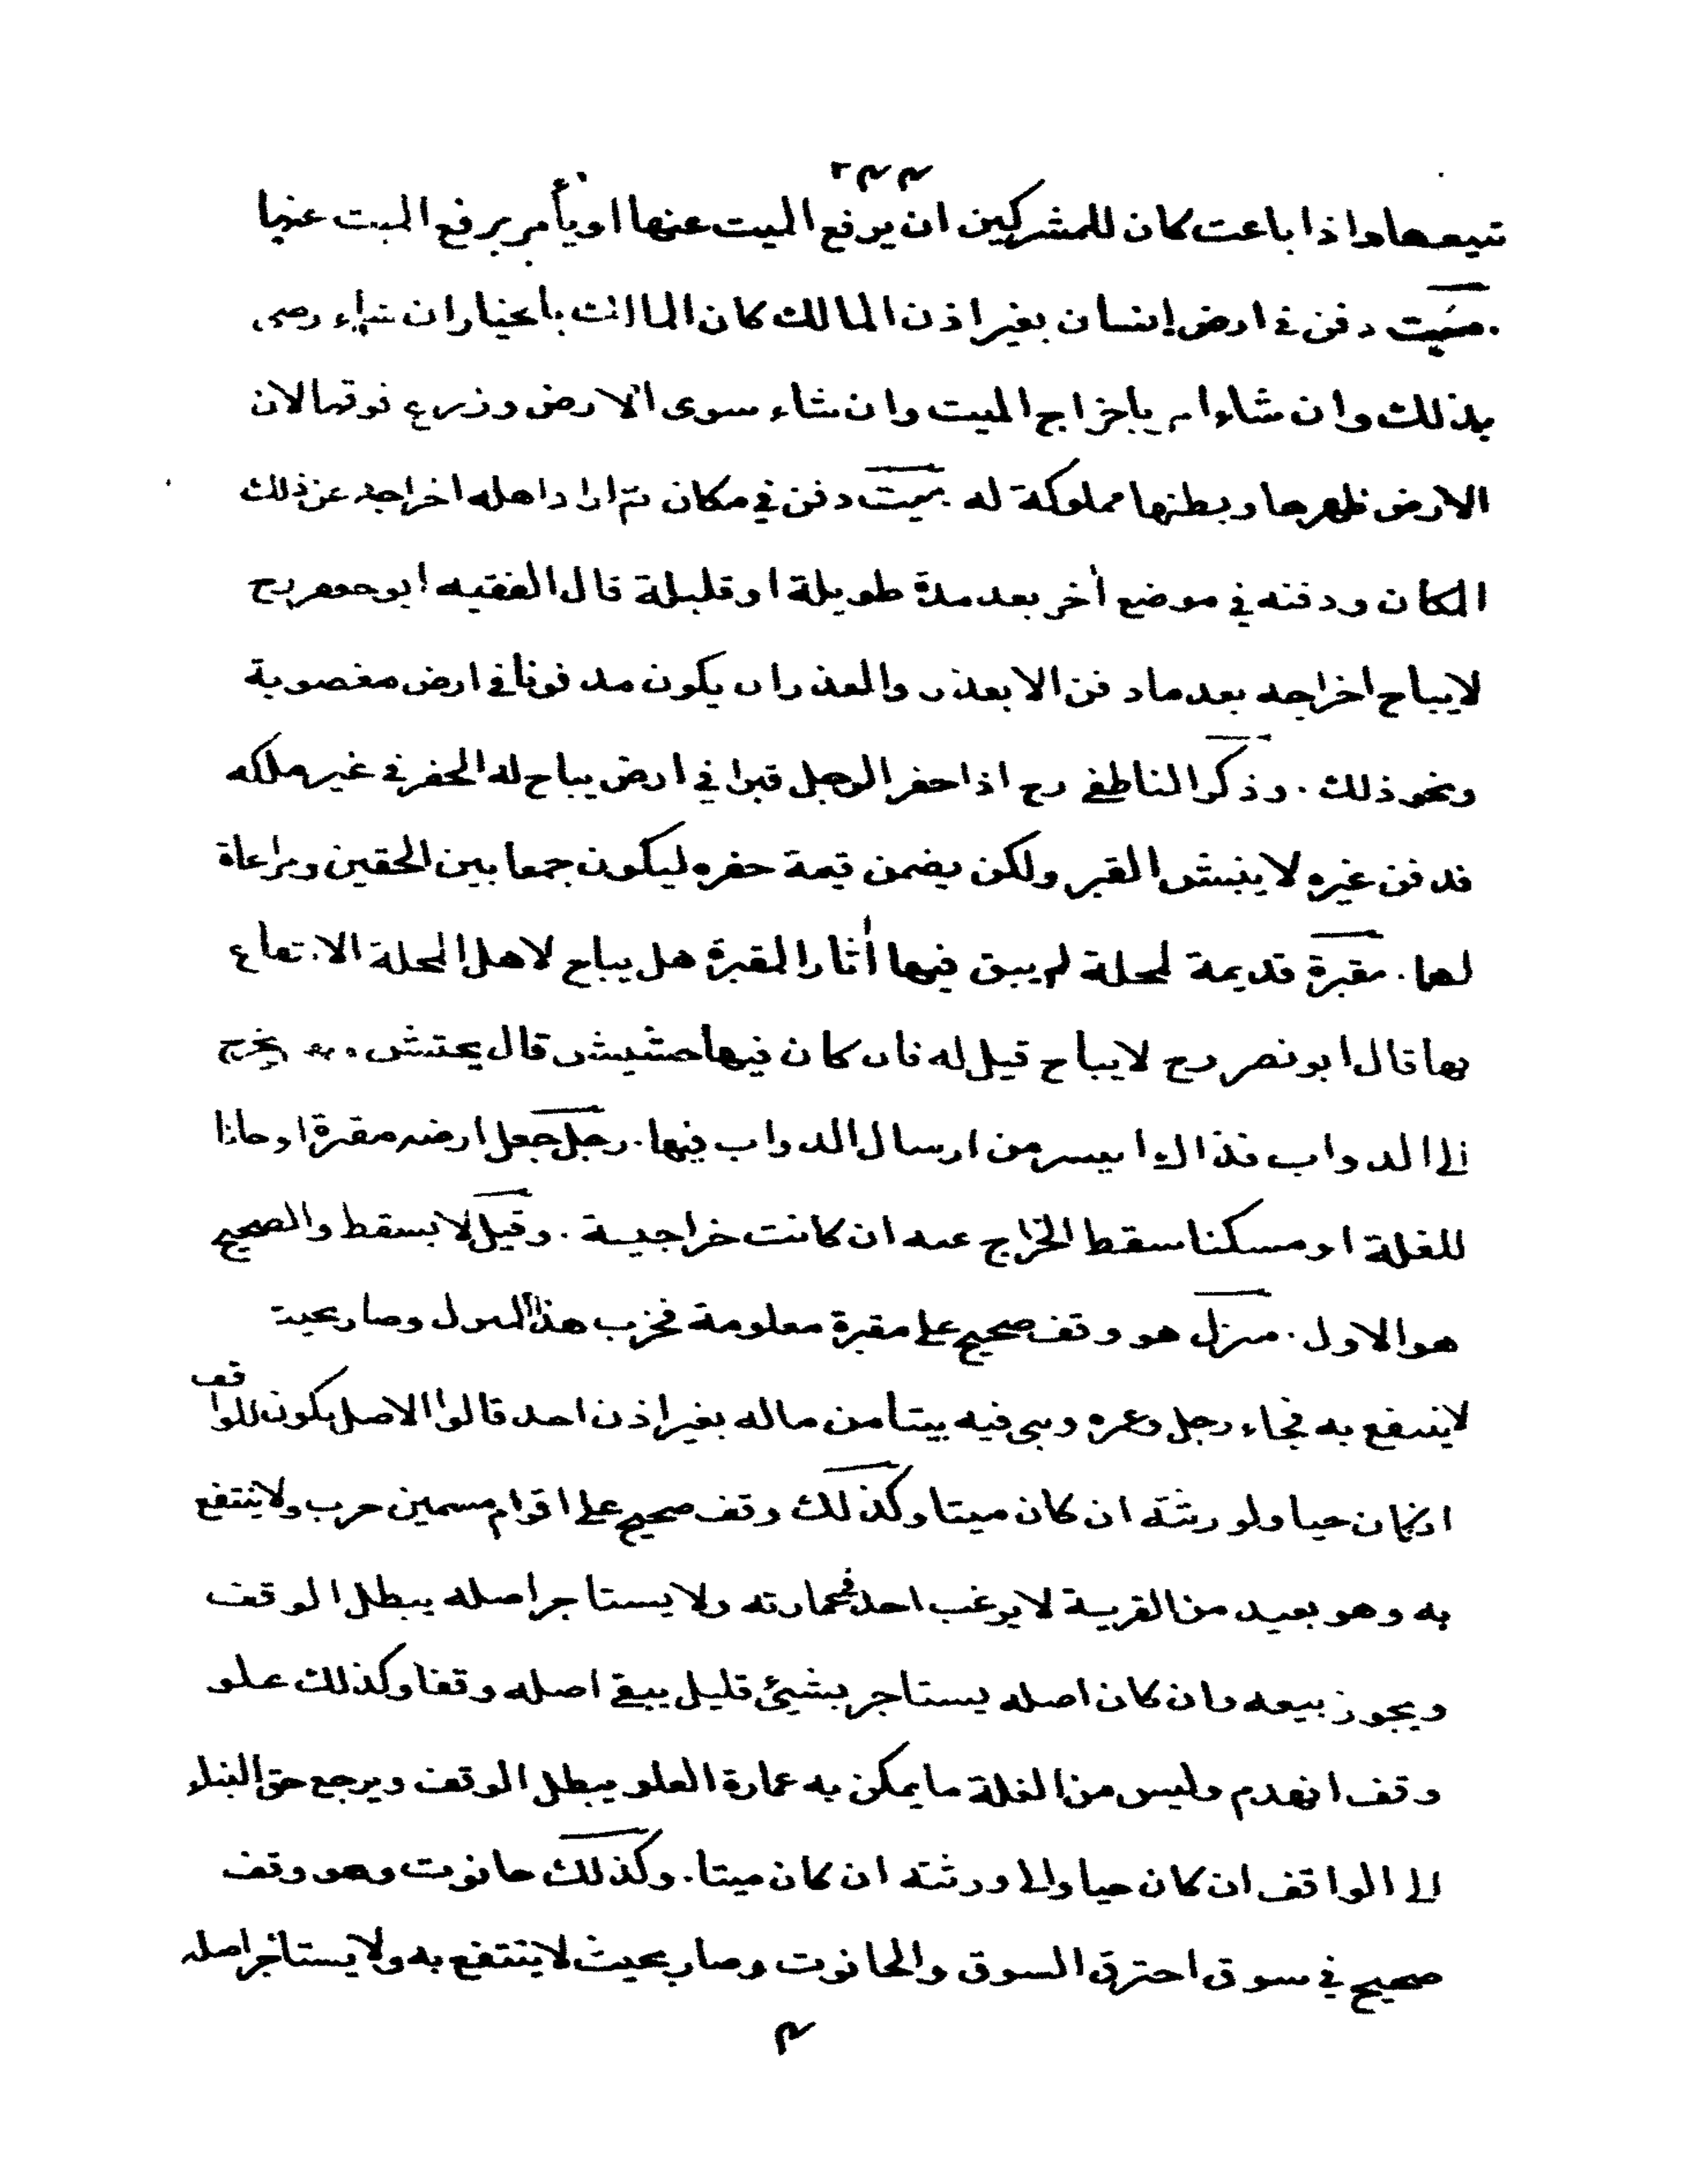 ٢٤٤
تبيعها واذا باعت كان للمشركين ان يرفع الميت عنها او يأمر برفع الميت عنها
. ميت دفن في ارض إنسان بغير اذن المالك كان المالك بالخيار ان شاء رضى
بذلك وان شاء امر باخراج الميت وان شاء سوى الارض وزرع فوقها لان
الارض ظهرها وبطنها مملوكة له . ميت دفن في مكان ثم اراد اهله اخراجه عن ذلك
المكان ودفنه في موضع أخر بعد مدة طويلة او قليلة قال الفقيه ابو جعفر رح
لايباح اخراجه بعد ما دفن الا بعذر والعذر ان يكون مدفونا في ارض مغصوبة
ونحو ذلك . وذكر الناطفي رح اذا حفر الرجل قبرا في ارض يباح له الحفر في غير ملكه
فدفن غيره لا ينبش القبر ولكن يضمن قيمة حفره ليكون جمعا بين الحقين ومراعاة
لهما . مقبرة قديمة لمحلة لم يبق فيها أثار المقبرة هل يباح لاهل المحلة الانتفاع
بها قال ابو نصر رح لا يباح قيل له فان كان فيها حشيش قال يحتش منها ويخرج
الى الدواب فذالك ايسر من ارسال الدواب فيها . رجل جعل ارضه مقبرة او خانا
للغلة او مسكنا سقط الخراج عنه ان كانت خراجية . وقيل لا يسقط والصحيح
هو الاول . منزل هو وقف صحيح على مقبرة معلومة فخرب هذا المنزل وصار بحيث
لاينتفع به فجاء رجل وعمره وبنى فيه بيتا من ماله بغير اذن احد قالوا الاصل يكون للواقف
ان كان حيا ولورثته ان كان ميتا وكذلك وقف صحيح على اقوام مسمين خرب ولا ينتفع
به وهو بعيد من القرية لا يرغب احد في عمارته ولا يستاجر اصله يبطل الوقف
ويجوز بيعه وان كان اصله يستاجر بشيئ قليل يبقى اصله وقفا وكذلك علو
وقف انهدم وليس من الغلة ما يمكن به عمارة العلو يبطل الوقف ويرجع حق البناء
الى الواقف ان كان حيا والى ورثته ان كان ميتا . وكذلك حانوت وهو وقف
صحيح في سوق احترق السوق والحانوت وصار بحيث لا ينتفع به ولا يستأجر اصله